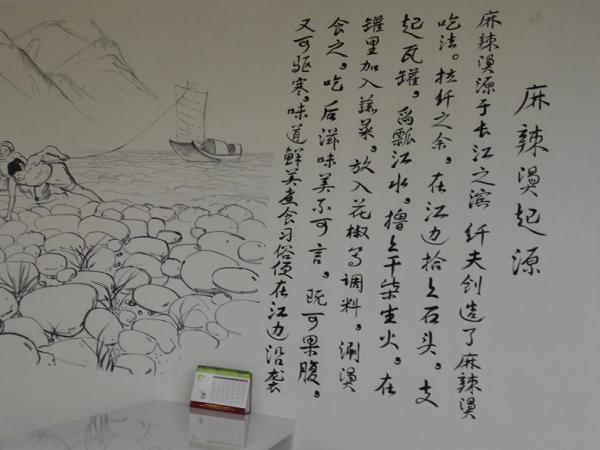 麻辣烫起源
麻辣烫源于长江之滨纤夫创造了麻辣烫
吃法。拉纤之余，在江边拾上石头，支
起瓦罐，舀瓢江水，撸上干柴生火，在
罐里加入蔬菜，放入花椒等调料，涮烫
食之，吃后滋味美不可言，既可果腹，
又可驱寒，味道鲜美煮食习俗便在江边沿袭